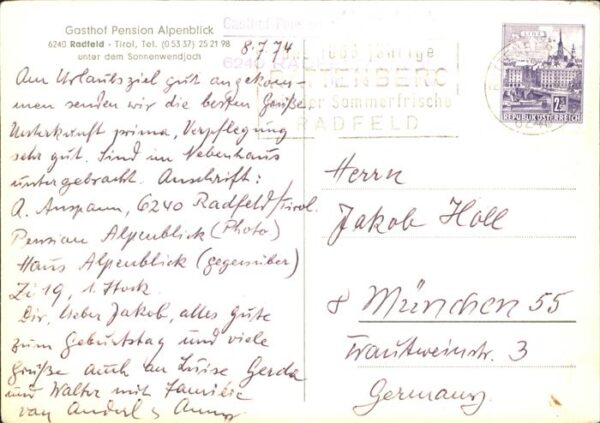 Gasthof Pension Alpenblick
6240 Radfeld - Tirol, Tel. (0 53 37) 25 21 98
unter dem Sonnenwendjoch
8.7.74
Am Urlaubsziel gut angekom-
men senden wir die besten Grüße.
Unterkunft prima, Verpflegung
sehr gut. Sind im Nebenhaus
untergebracht. Anschrift:
A. Anspann, 6240 Radfeld/Tirol.
Pension Alpenblick (Photo)
Haus Alpenblick (gegenüber)
Zi 19, 1. Stock.
Dir, lieber Jakob, alles gute
zum Geburtstag und viele
Grüße auch an Luise Gerda
und Walter mit Familie
von Anderl &
Gasthof
6240
1000 jährige
RATTENBERG
der Sommerfrische
RADFELD
6240
LINZ
2.50
REPUBLIK ÖSTERREICH
Herrn
Jakob Holl
8 München 55
Trautweinstr. 3
Germany.